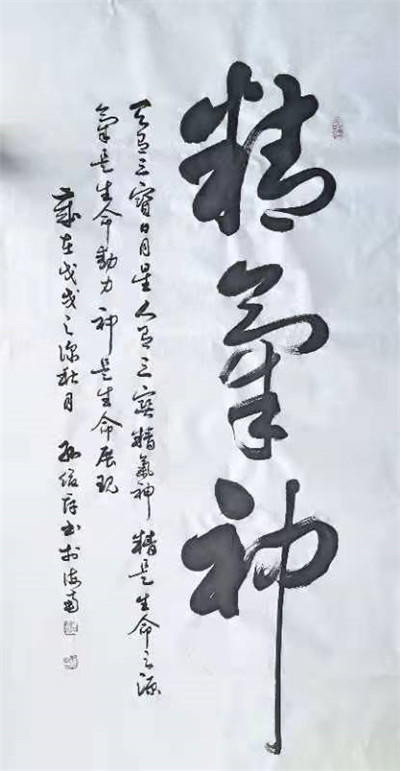 精氣神
天有三寶日月星人有三寶精氣神精是生命之源
氣是生命動力神是生命展現
歲在戊戌之深秋月 孫 書於海南